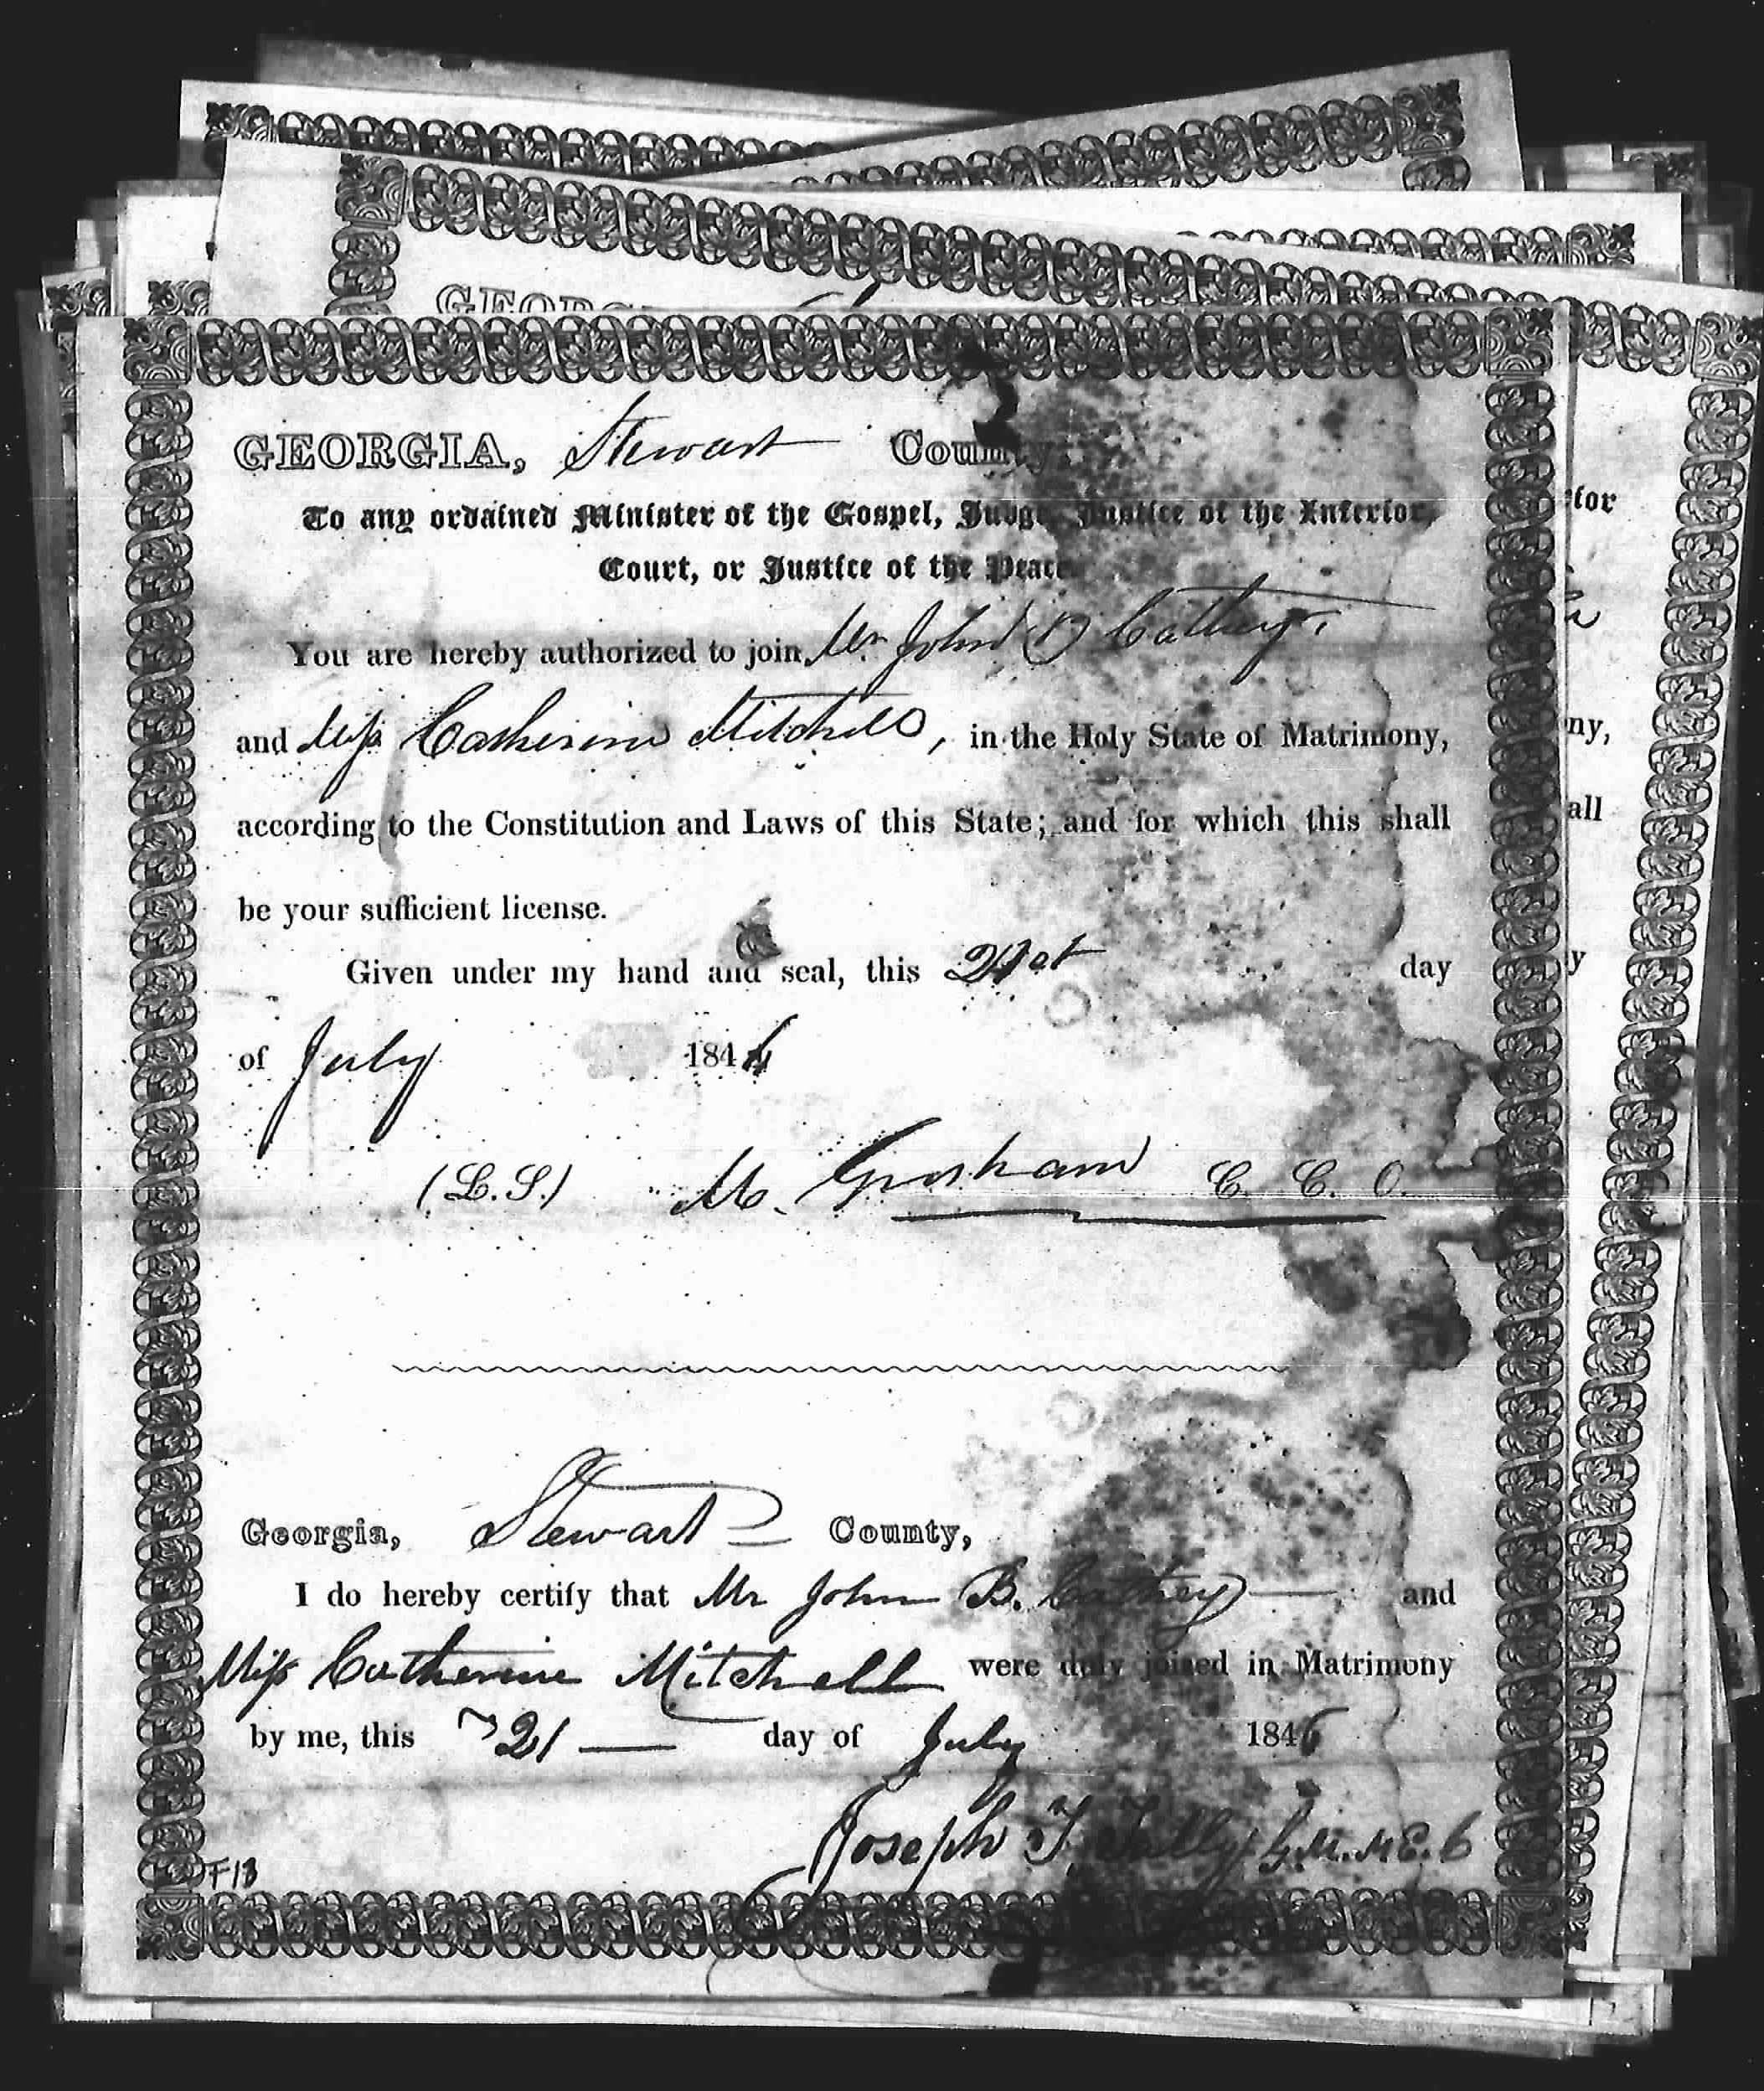 GEORGIA, Stewart County
To any ordained Minister of the Gospel, Judge, Justice of the Inferior,
Court, or Justice of the Peace
You are hereby authorized to join Mr John B Cathey,
and Miss Catherine Mitchell, in the Holy State of Matrimony,
according to the Constitution and Laws of this State; and for which this shall
be your sufficient license.
Given under my hand and seal, this 21st day
of July 1846
(L.S.) M. Gresham C. C. O.
Georgia, Stewart County,
I do hereby certify that Mr John B. Cathey and
Miss Catherine Mitchell were duly joined in Matrimony
by me, this 21 day of July 1846
Joseph T. Tally M.E.C
F13